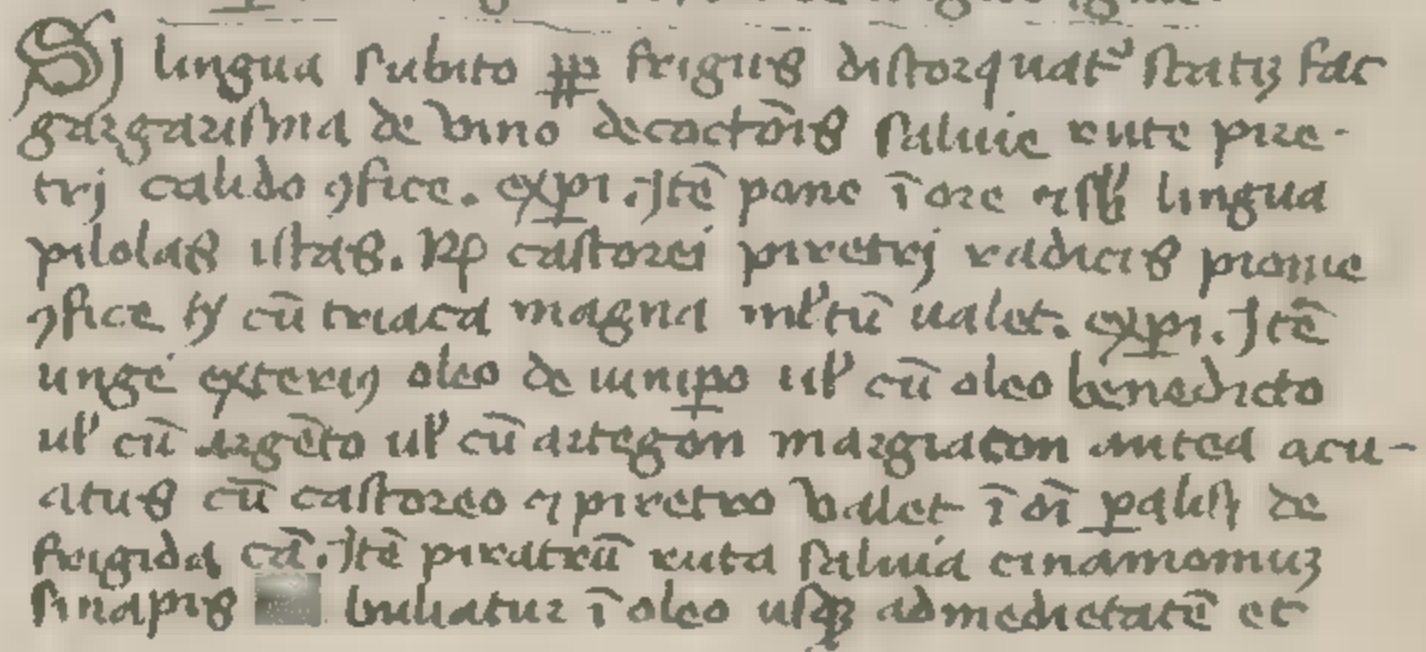 Sj lingua subito ꝓp frigus distorq̄uat᷑ statiʒ fac
gargarisma de vino decoctōis saluie rute pire-
trj calido ꝯfice. exꝑi. Jtē pone ī ore ⁊ sb̾ lingua
pilolas istas. Rp castorei piretrj radicis pionie
ꝯfice cū triaca magna ml̾tū ualet. exꝑi. Jtē
unge exteriꝰ oleo de iuniꝑo ul̾ cū oleo benedicto
ul̾ cū argēto ul̾ cū artegon margiaton antea acu-
atus cū castoreo ⁊ piretro valet ī oī ꝑalisi de
frigida cā. Jtē piratrū ruta saluia cinamomuʒ
sinapis buliatur ī oleo usqꝫ ad medietatē et